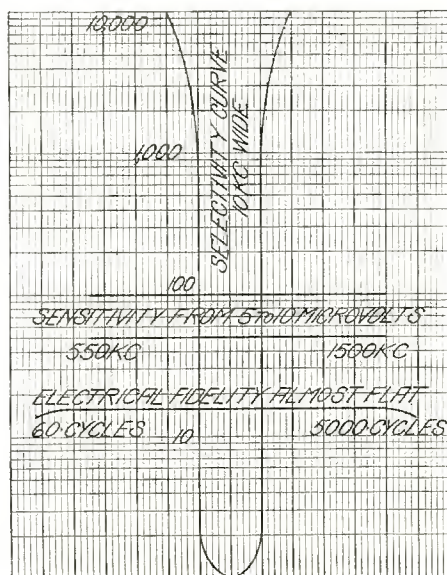 10,000
SELECTIVITY CURVE
10 KC WIDE
1,000
100
SENSITIVITY FROM 5 TO 10 MICROVOLTS
550KC 1500KC
ELECTRICAL FIDELITY ALMOST FLAT
60-CYCLES 10 5000-CYCLES